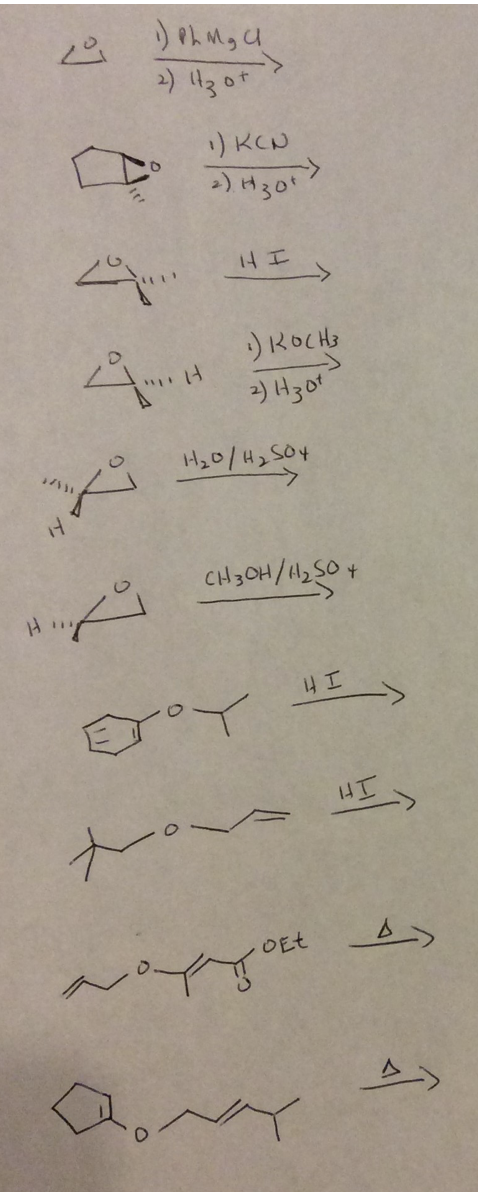 O 1) PhMgCl
2) H3O+
O 1) KCN
2) H3O+
O HI
O H 1) KOCH3
2) H3O+
O H2O/H2SO4
H
O CH3OH/H2SO4
H
O HI
O HI
O OEt Δ
O
O Δ